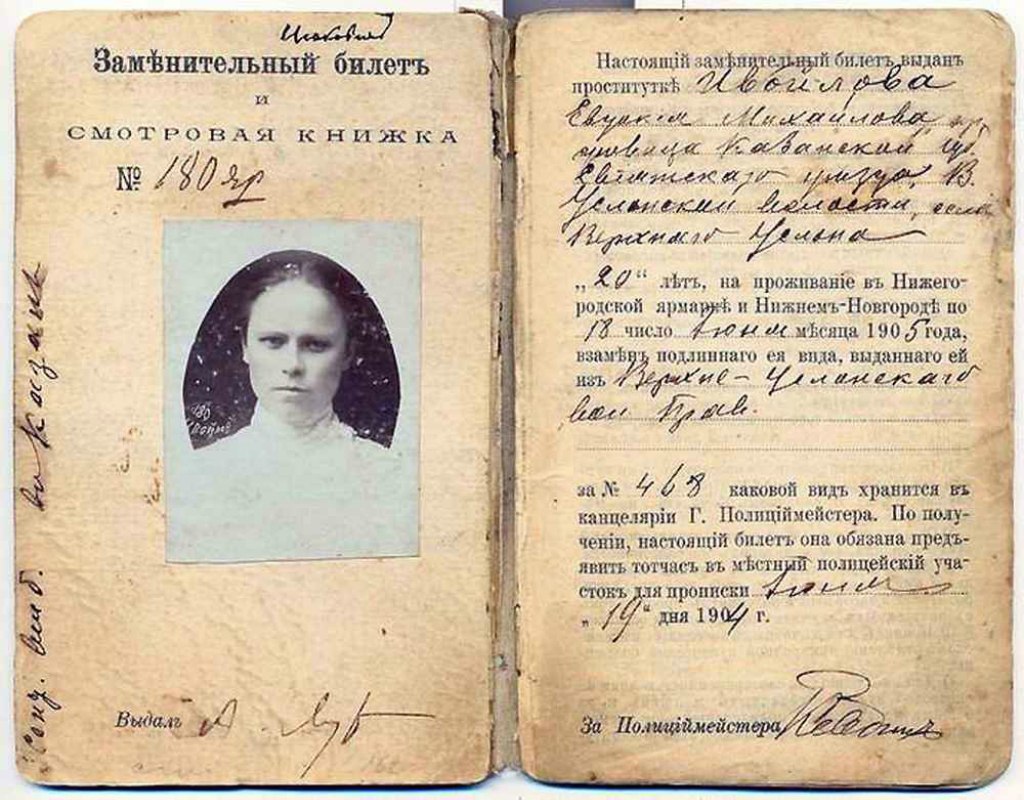 Замѣнительный билетъ
и
СМОТРОВАЯ КНИЖКА
№ 180 яр
180
Выдалъ
Настоящій замѣнительный билетъ выданъ
проституткѣ Ивойлова
Евдокия Михайлова
Казанской губ.
уѣзда, В.
Услонской волости, села
Верхняго Услона
„20“ лѣтъ, на проживаніе въ Нижего-
родской ярмаркѣ и Нижнемъ-Новгородѣ по
18 число Іюня мѣсяца 1905 года,
взамѣнъ подлиннаго ея вида, выданнаго ей
изъ Верхне-Услонскаго
вол Прав.
за № 468 каковой видъ хранится въ
канцеляріи Г. Полиціймейстера. По полу-
ченіи, настоящій билетъ она обязана предъ-
явить тотчасъ въ мѣстный полицейскій уча-
стокъ для прописки Іюня
„19“ дня 1904 г.
За Полиціймейстера